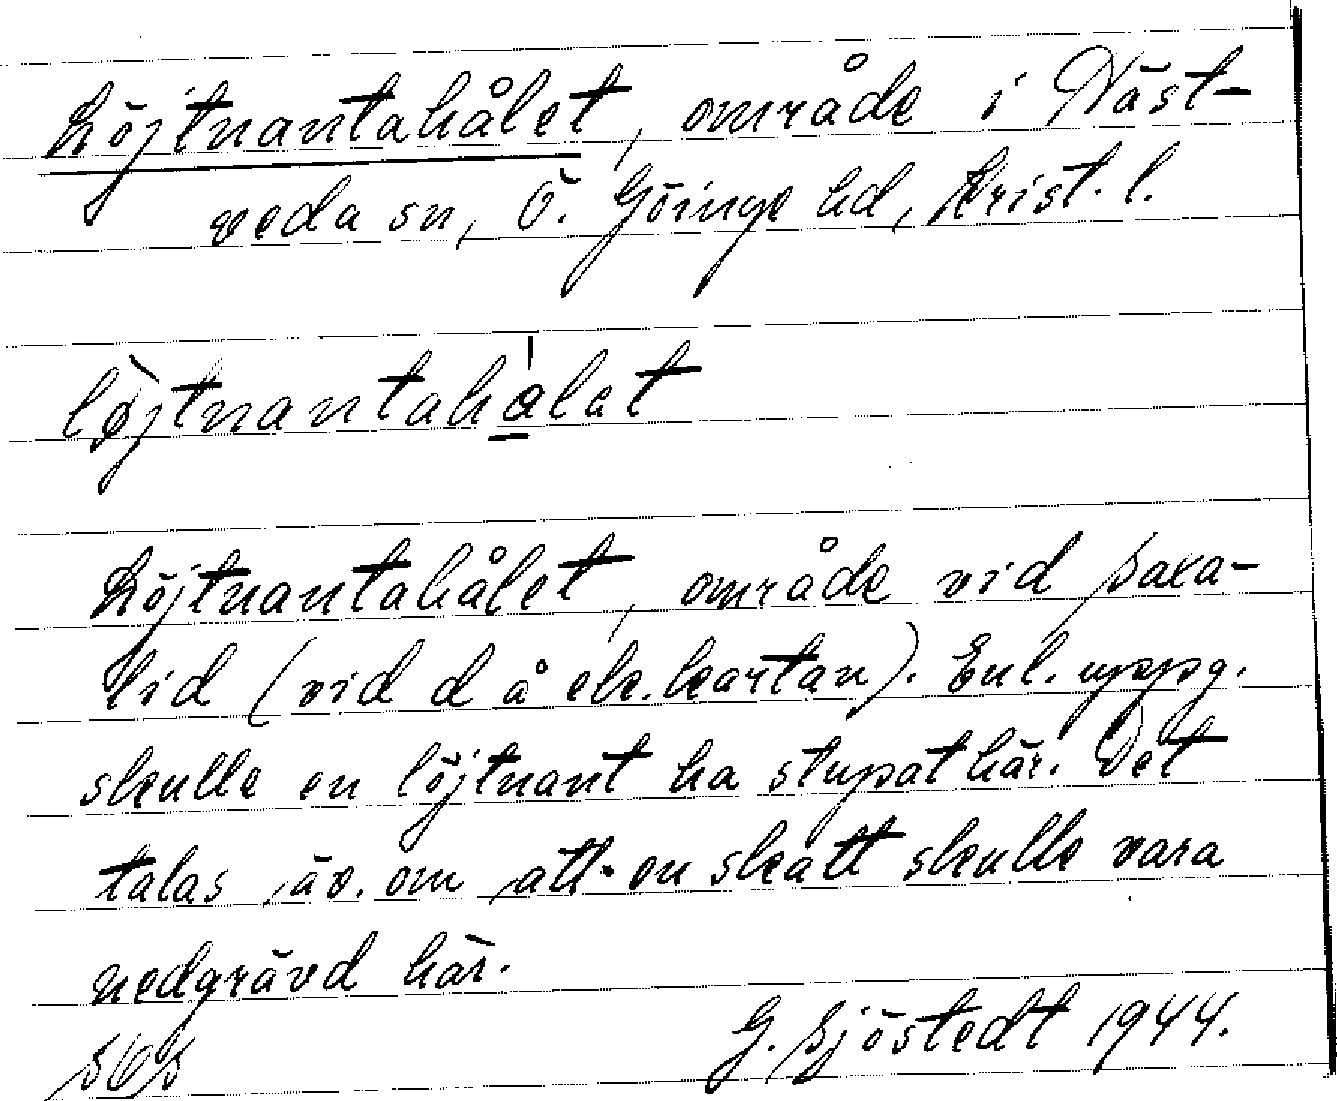 Löjtnantahålet, område i Näst-
veda sn, Ö. Göinge hd, Krist. l.
lø̀jtnantahålet
Löjtnantahålet, område vid Saxa-
lid (vid d å ek. kartan). Enl. uppg.
skulle en löjtnant ha stupat här. Det
talas äv. om att en skatt skulle vara
nedgrävd här.
G. Sjöstedt 1944.